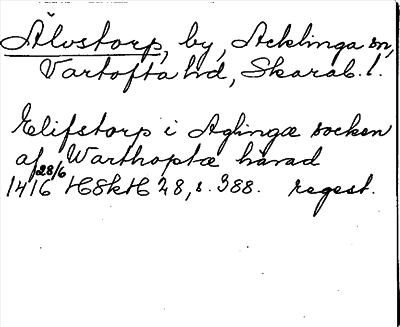 Älvstorp, by, Acklinga sn,
Vartofta hd, Skarab. l.
Elifstorp i Aglingæ socken
af Warthoptæ härad
28/6
1416 HSkH 28, s. 388. regest.